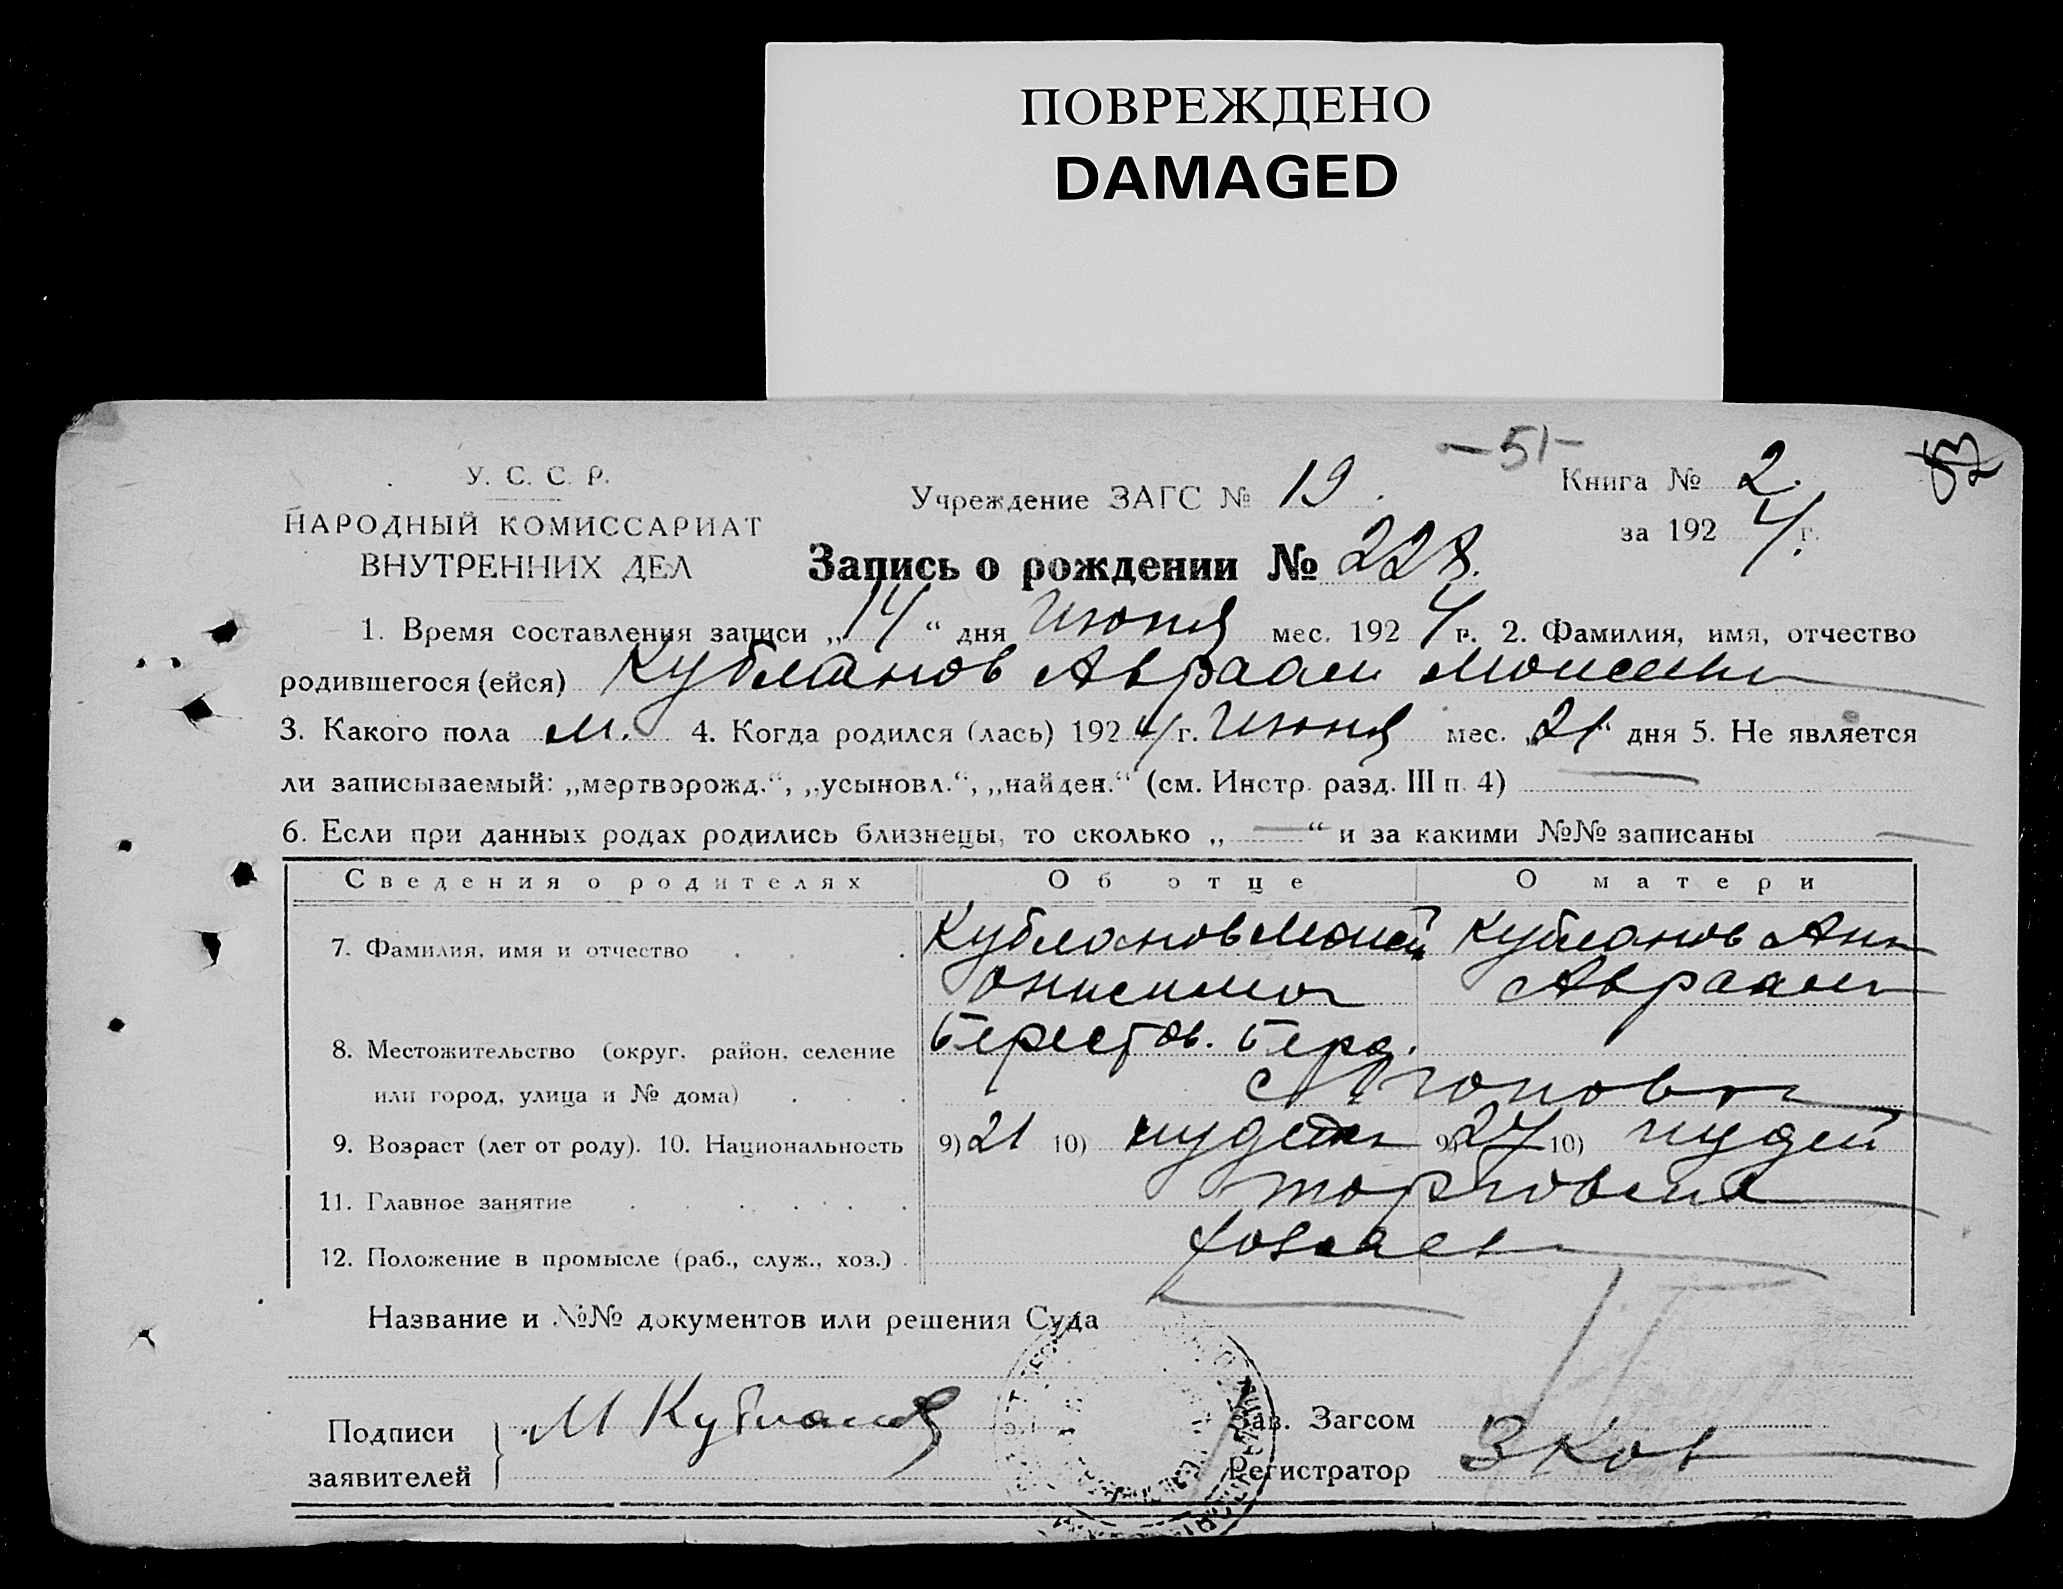 ПОВРЕЖДЕНО
DAMAGED
-51-
У. С. С. Р.
НАРОДНЫЙ КОМИССАРИАТ
ВНУТРЕННИХ ДЕЛ
Учреждение ЗАГС № 19.
Книга № 2.
за 1924 г.
Запись о рождении № 228.
1. Время составления записи „14“ дня Июня мес. 1924 г. 2. Фамилия, имя, отчество
родившегося (ейся) Кубланов Авраам Моисеев
3. Какого пола м. 4. Когда родился (лась) 1924 г. Июня мес. „21“ дня 5. Не является
ли записываемый: „мертворожд.“, „усыновл.“, „найден.“ (см. Инстр. разд. III п. 4) —
6. Если при данных родах родились близнецы, то сколько „—“ и за какими №№ записаны —
Сведения о родителях Об отце О матери
7. Фамилия, имя и отчество Кубланов Моисей Кубланов Анн
Онисимов Авраам
8. Местожительство (округ, район, селение Берестов. Берд.
или город, улица и № дома)
9. Возраст (лет от роду). 10. Национальность 9) 21 10) иудей 9) 24 10) иудей
11. Главное занятие торговец
12. Положение в промысле (раб., служ., хоз.) хозяев
Название и №№ документов или решения Суда
Подписи
заявителей М Кубланов
Зав. Загсом
Регистратор